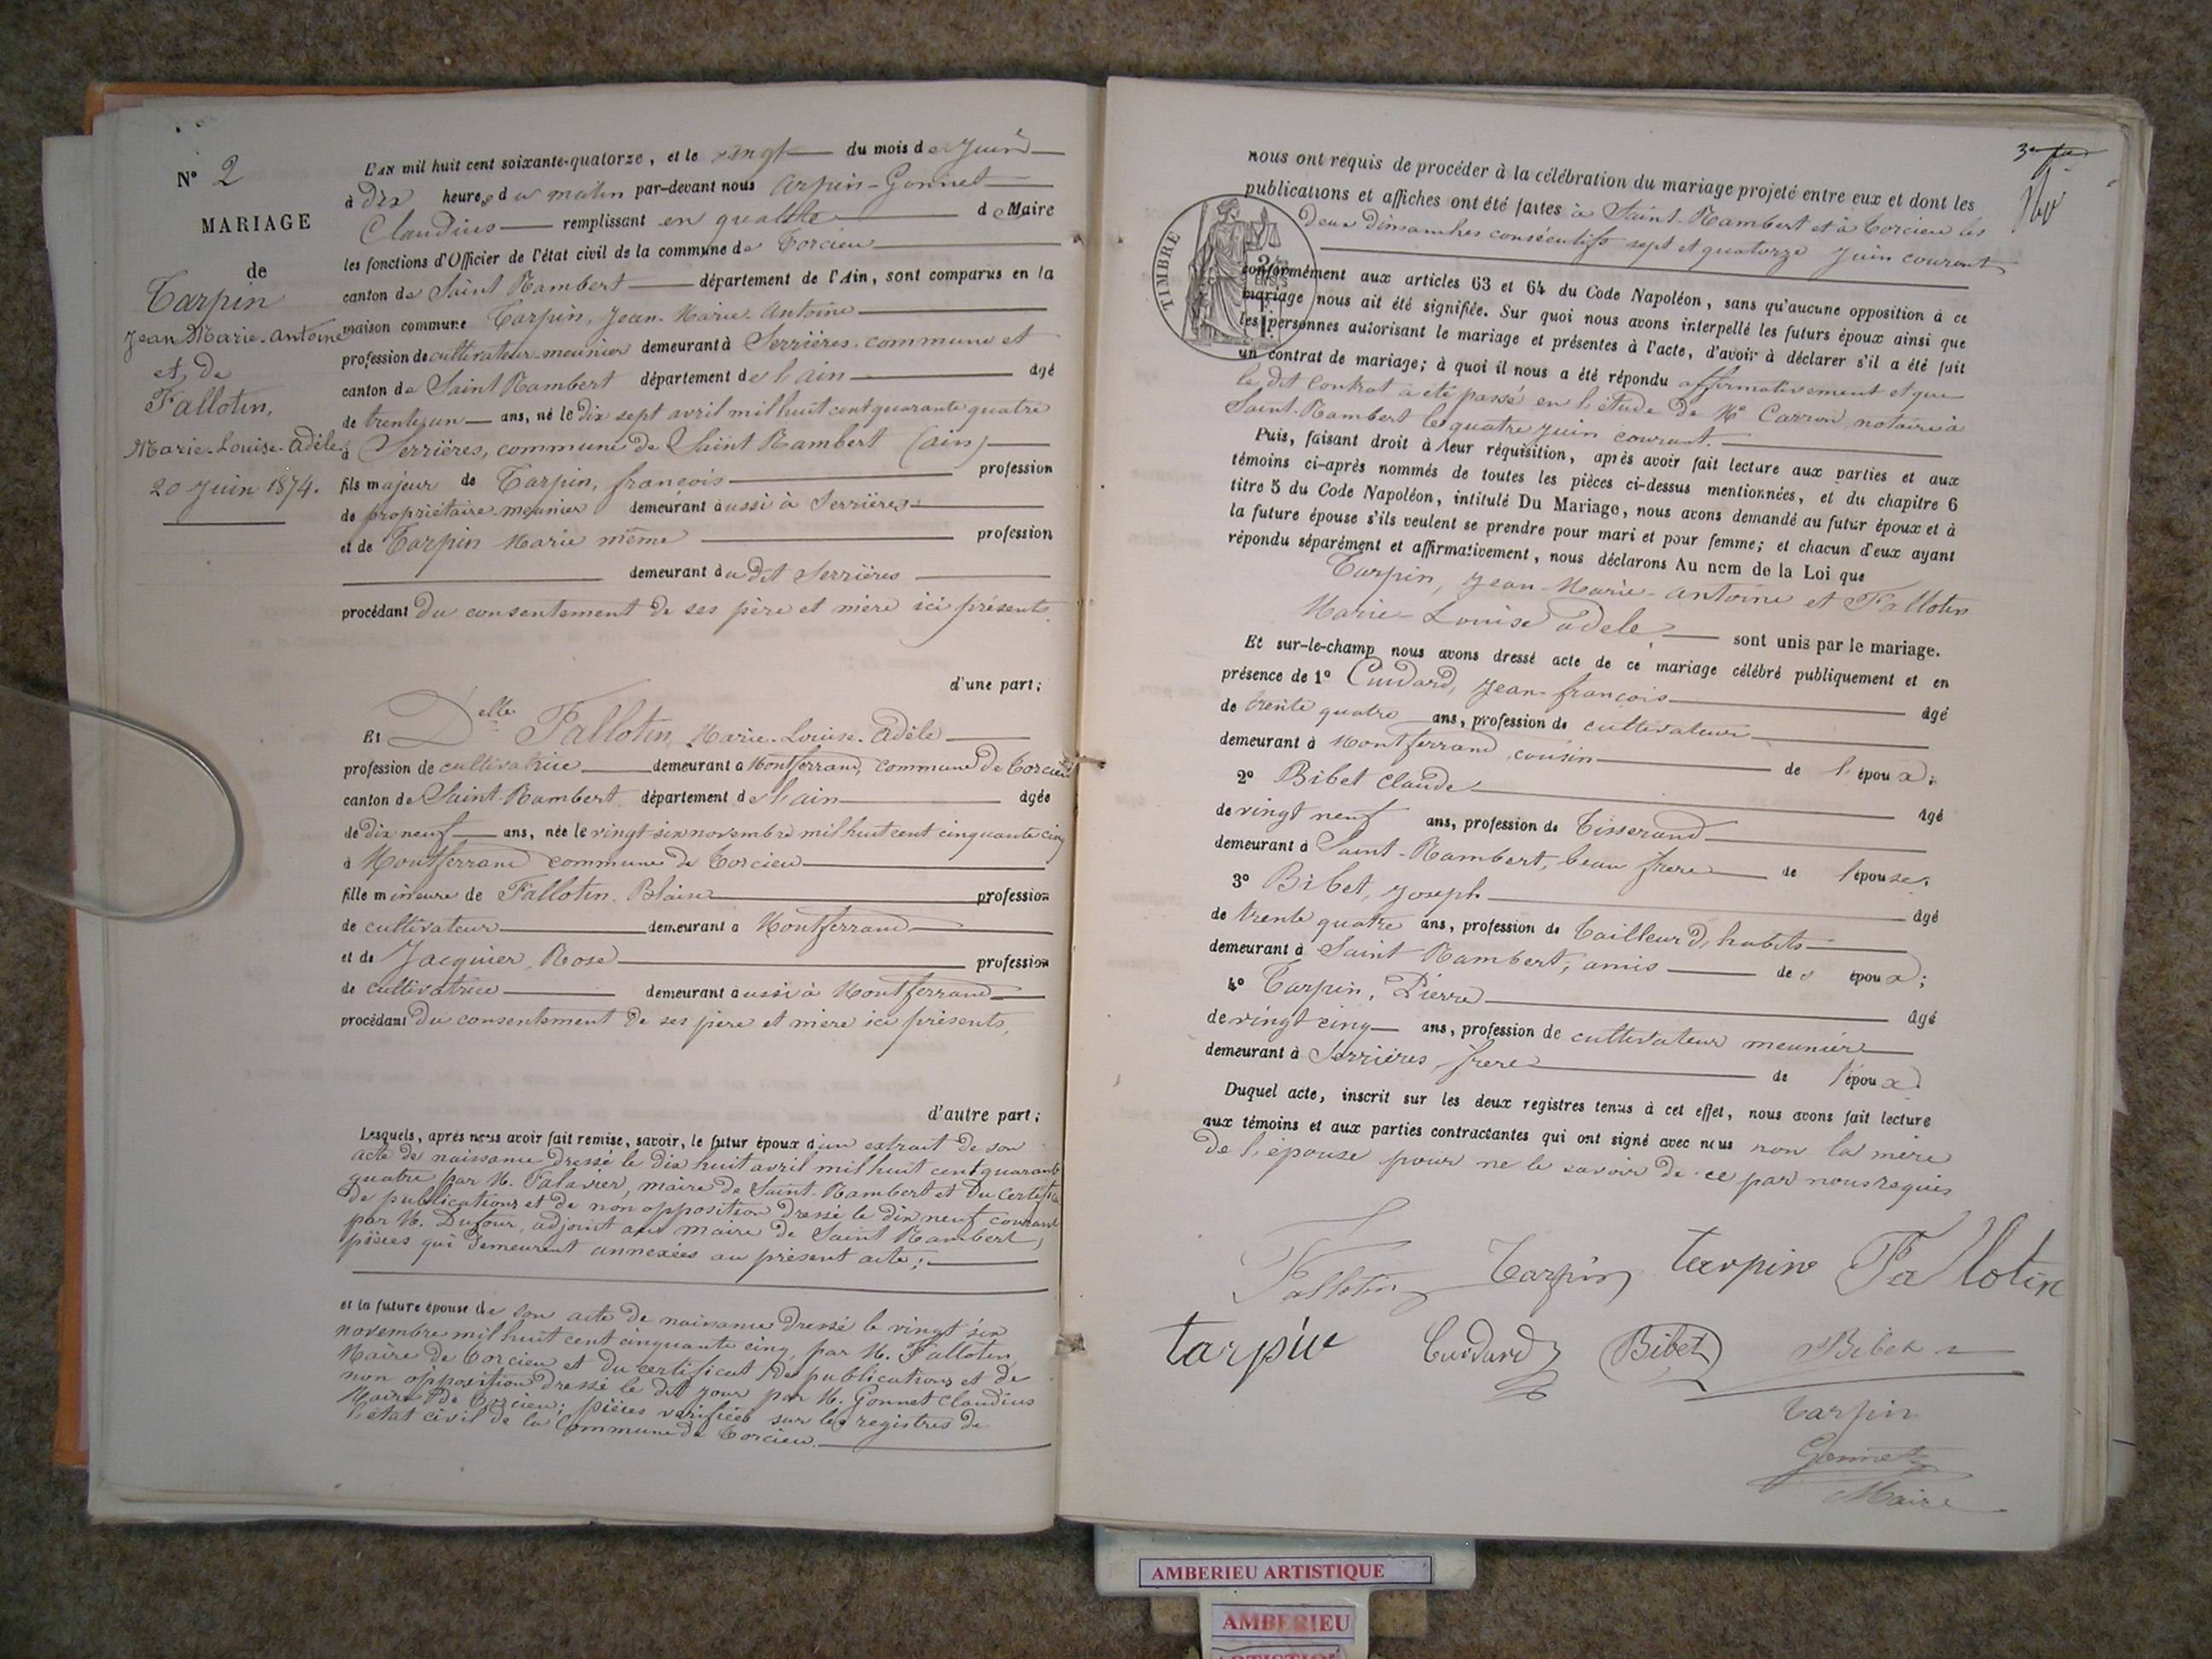 N° 2
MARIAGE
de
Tarpin
Jean Marie-Antoine
et de
Fallotin,
Marie-Louise-Adèle
20 Juin 1874.
L'an mil huit cent soixante-quatorze, et le vingt du mois de Juin
à dix heures du matin par-devant nous Arpin-Gonnet
Claudius remplissant en qualité de Maire
les fonctions d'Officier de l'état civil de la commune de Torcieu
canton de Saint Rambert département de l'Ain, sont comparus en la
maison commune Tarpin, Jean-Marie-Antoine
profession de cultivateur meunier demeurant à Serrières, commune et
canton de Saint Rambert département de l'ain âgé
de trente un ans, né le dix sept avril mil huit cent quarante quatre
à Serrières, commune de Saint Rambert (ain)
fils majeur de Tarpin, françois profession
de propriétaire-meunier demeurant aussi à Serrières
et de Tarpin Marie même profession
demeurant au dit Serrières
procédant du consentement de ses père et mère ici présents
d'une part;
Et Delle Fallotin, Marie-Louise-Adèle
profession de cultivatrice demeurant à Montferrand, commune de Torcieu
canton de Saint-Rambert département de l'ain âgée
de dix neuf ans, née le vingt six novembre mil huit cent cinquante cinq
à Montferrand commune de Torcieu
fille mineure de Fallotin Blaise profession
de cultivateur demeurant à Montferrand
et de Jacquier, Rose profession
de cultivatrice demeurant aussi à Montferrand
procédant du consentement de ses père et mère ici présents,
d'autre part;
Lesquels, après nous avoir fait remise, savoir, le futur époux d'un extrait de son
acte de naissance dressé le dix huit avril mil huit cent quarante
quatre par M. , maire de Saint-Rambert et du certificat
de publications et de non opposition dressé le dix neuf courant
par M. Dufour, adjoint au maire de Saint Rambert,
pièces qui demeurent annexées au présent acte;
et la future épouse de son acte de naissance dressé le vingt six
novembre mil huit cent cinquante cinq, par M. Fallotin,
Maire de Torcieu et du certificat de publications et de
non opposition dressé le dit jour par M. Gonnet Claudius
Maire de Torcieu; pièces vérifiées sur les registres de
l'état civil de la Commune de Torcieu.
nous ont requis de procéder à la célébration du mariage projeté entre eux et dont les
publications et affiches ont été faites à Saint-Rambert et à Torcieu les
deux dimanches consécutifs sept et quatorze Juin courant
TIMBRE
conformément aux articles 63 et 64 du Code Napoléon, sans qu'aucune opposition à ce
mariage nous ait été signifiée. Sur quoi nous avons interpellé les futurs époux ainsi que
les personnes autorisant le mariage et présentes à l'acte, d'avoir à déclarer s'il a été fait
un contrat de mariage; à quoi il nous a été répondu affirmativement et que
le dit Contrat a été passé en l'étude de Me Carron, notaire à
Saint-Rambert le quatre Juin courant.
Puis, faisant droit à leur réquisition, après avoir fait lecture aux parties et aux
témoins ci-après nommés de toutes les pièces ci-dessus mentionnées, et du chapitre 6
titre 5 du Code Napoléon, intitulé Du Mariage, nous avons demandé au futur époux et à
la future épouse s'ils veulent se prendre pour mari et pour femme; et chacun d'eux ayant
répondu séparément et affirmativement, nous déclarons Au nom de la Loi que
Tarpin, Jean-Marie-Antoine et Fallotin
Marie-Louise Adèle sont unis par le mariage.
Et sur-le-champ nous avons dressé acte de ce mariage célébré publiquement et en
présence de 1° Cuidard, Jean-françois âgé
de trente quatre ans, profession de cultivateur
demeurant à Montferrand, cousin de l'époux;
2° Bibet Claude âgé
de vingt neuf ans, profession de Tisserand
demeurant à Saint-Rambert, beau frère de l'épouse.
3° Bibet, Joseph âgé
de trente quatre ans, profession de Tailleur d'habits
demeurant à Saint Rambert, amis des époux;
4° Tarpin, Pierre âgé
de vingt cinq ans, profession de cultivateur meunier
demeurant à Serrières, frère de l'époux.
Duquel acte, inscrit sur les deux registres tenus à cet effet, nous avons fait lecture
aux témoins et aux parties contractantes qui ont signé avec nous non la mère
de l'épouse pour ne le savoir de ce par nous requis
Fallotin Tarpin tarpin Fallotin
tarpin Cuidard Bibet Bibet
Tarpin
Gonnet
Maire
AMBERIEU ARTISTIQUE
AMBERIEU
ARTISTIQUE